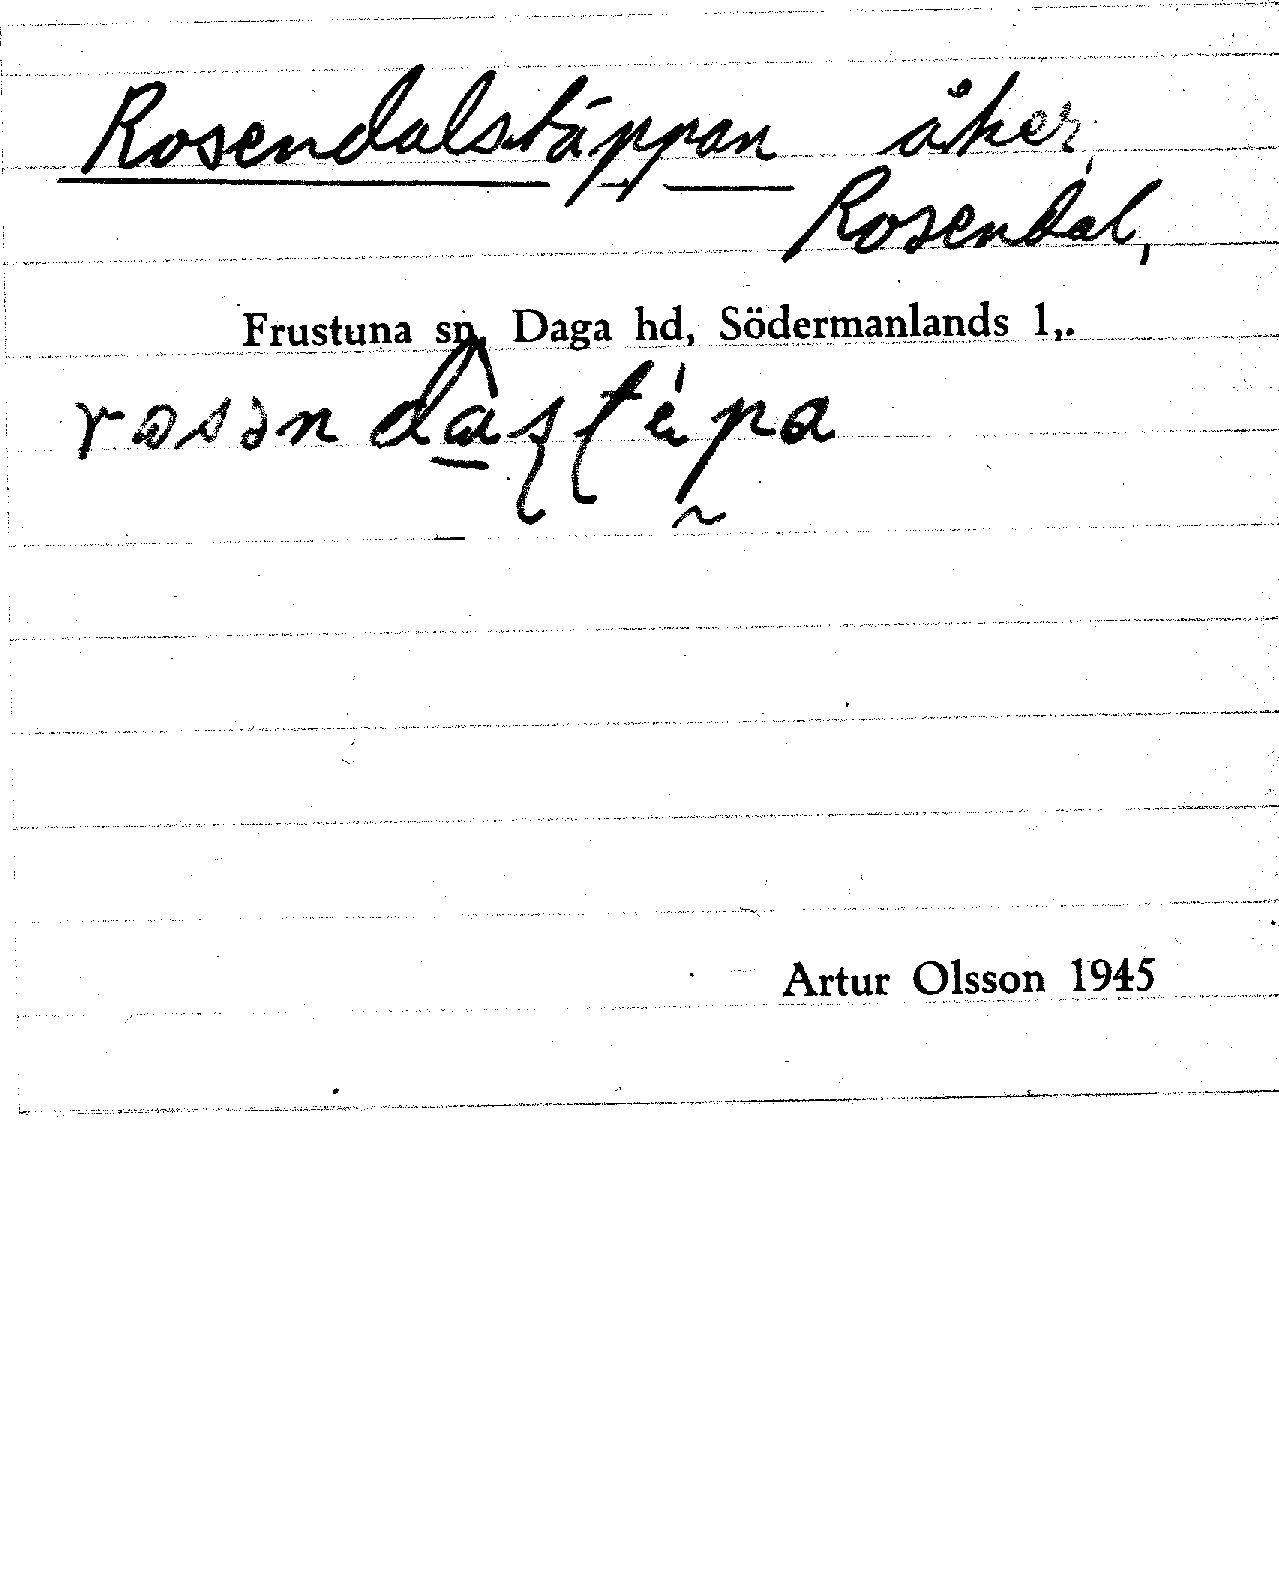 Rosendalstäppan åker,
Rosendal,
Frustuna sn, Daga hd, Södermanlands l,.
Artur Olsson 1945